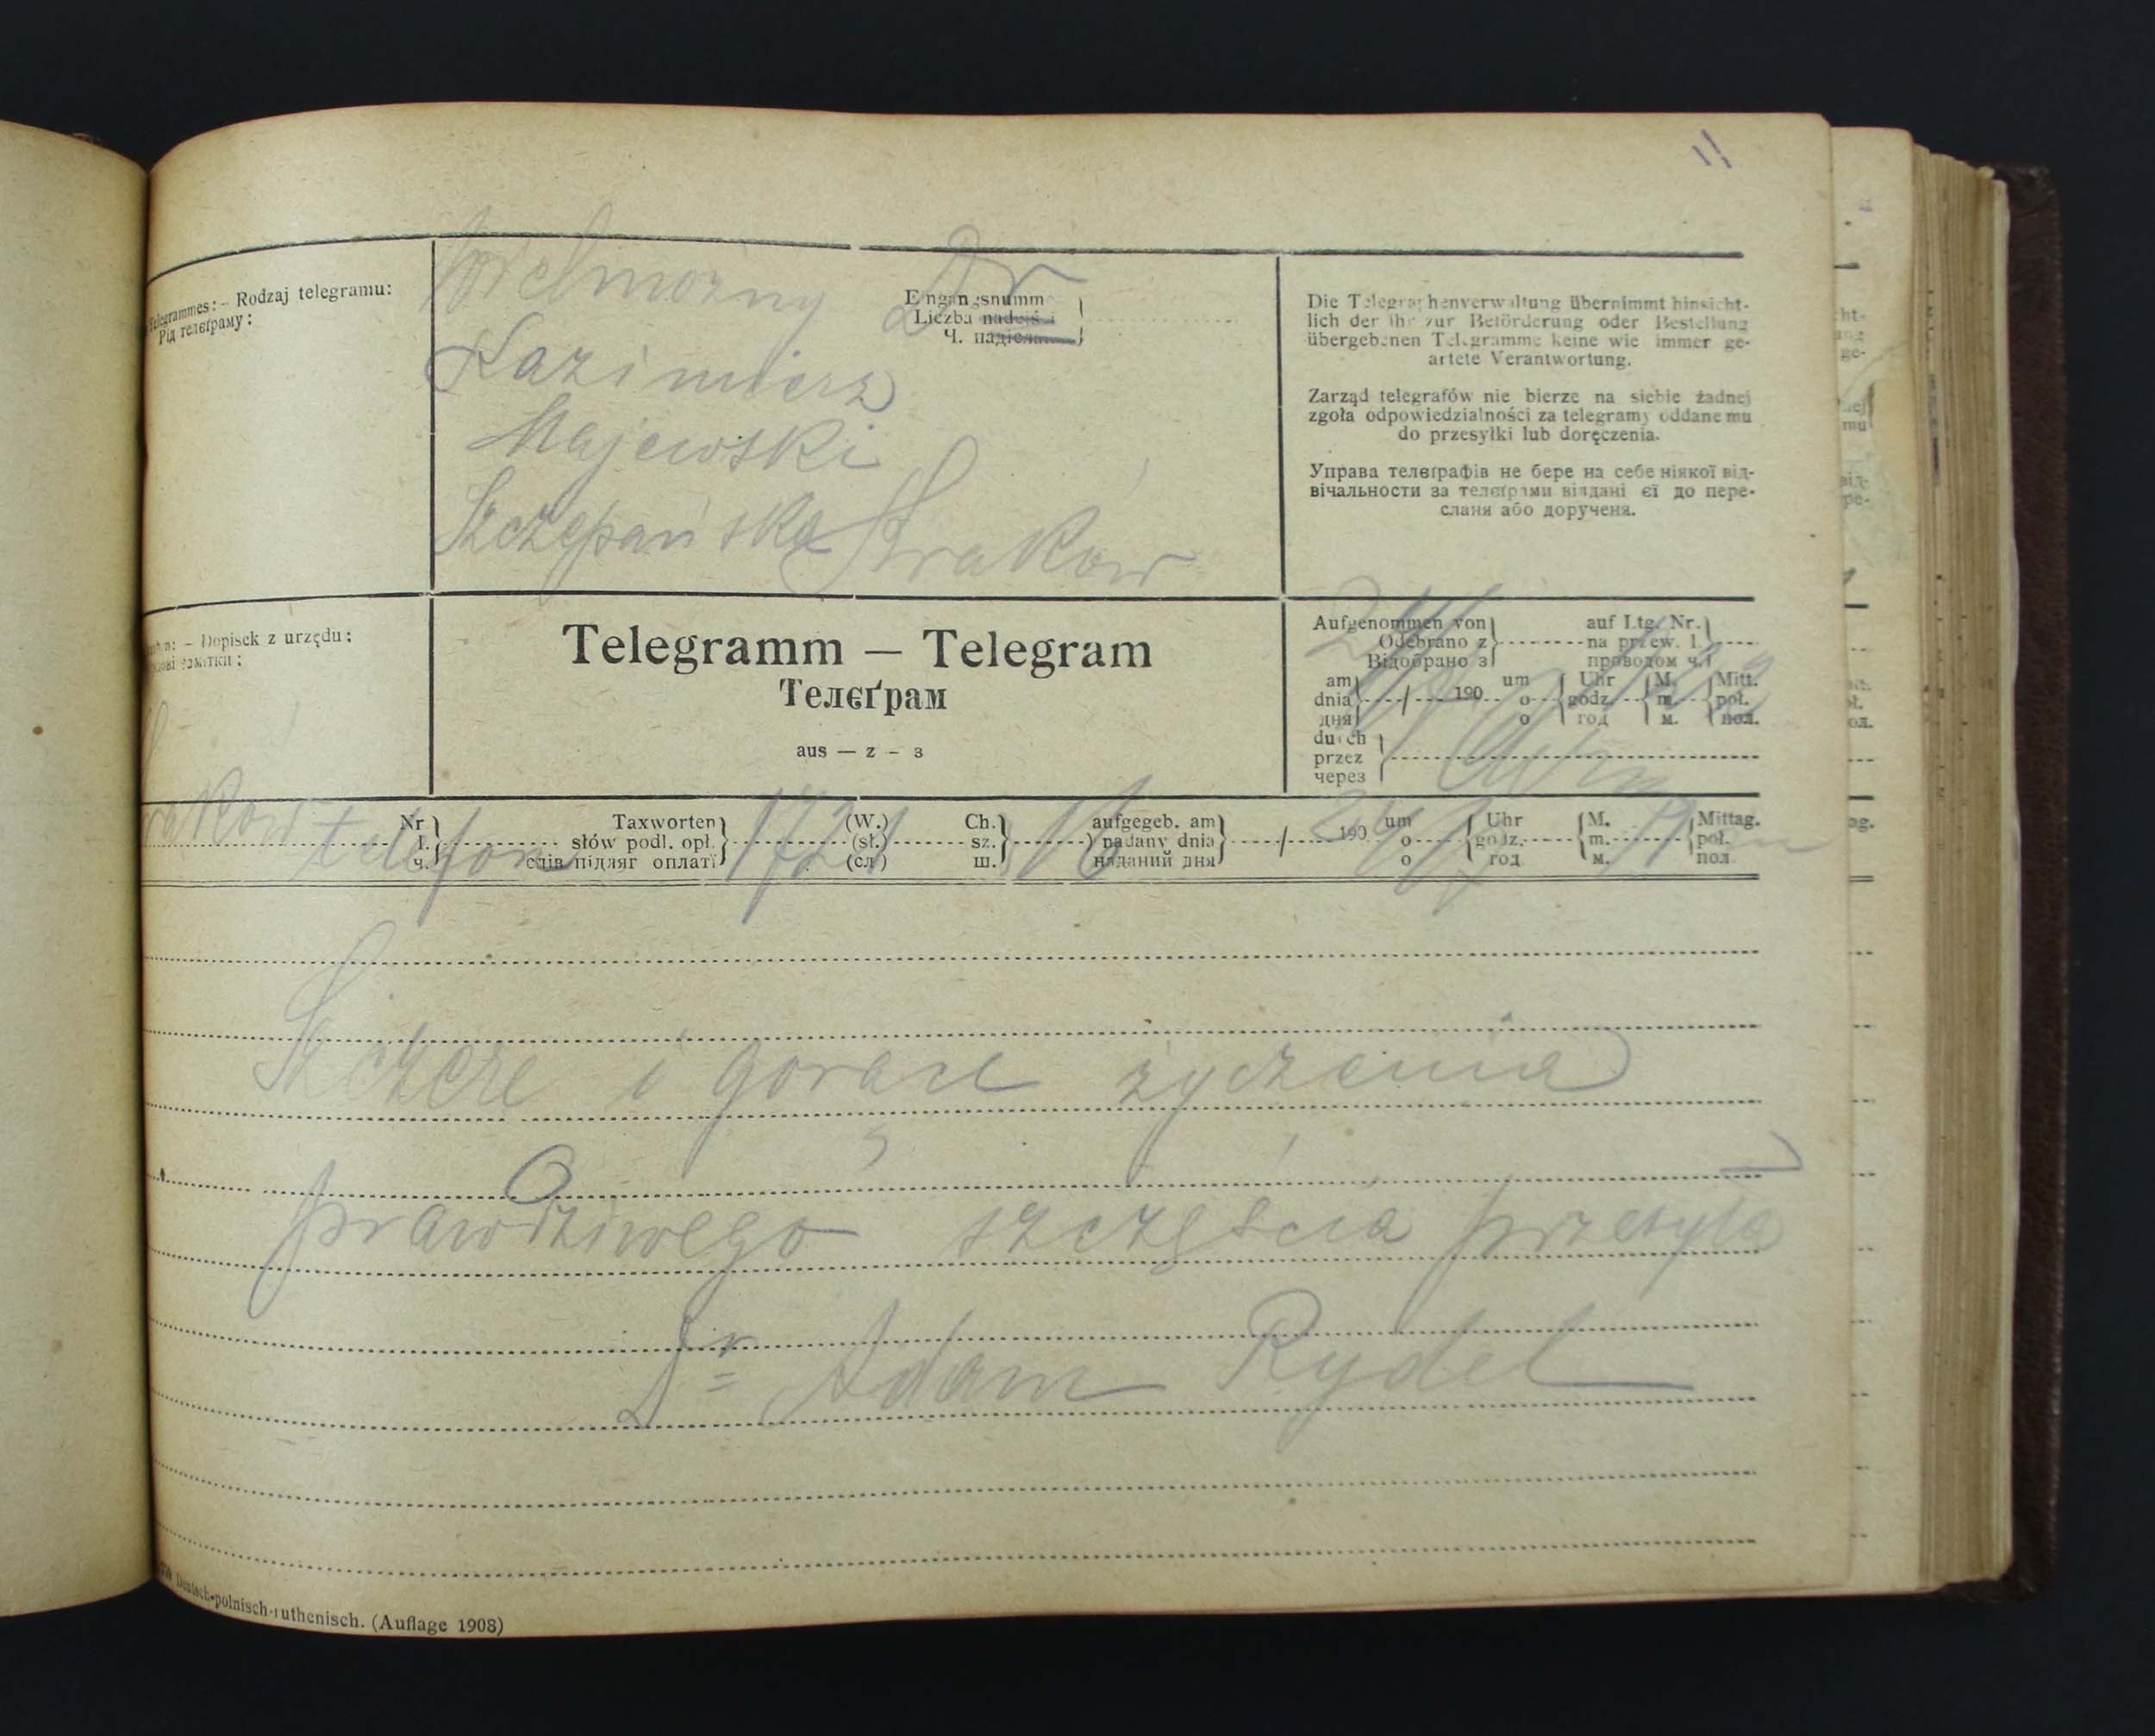 11
Telegrammes: – Rodzaj telegramu:
Рід телєґраму:
Wielmożny Dr
Eingangsnumm
Liczba nadejś
Ч. надісла
Kazimierz
Majewski
Szczepańska Kraków
Die Telegraphenverwaltung übernimmt hinsicht-
lich der ihr zur Beförderung oder Bestellung
übergebenen Telegramme keine wie immer ge-
artete Verantwortung.
Zarząd telegrafów nie bierze na siebie żadnej
zgoła odpowiedzialności za telegramy oddane mu
do przesyłki lub doręczenia.
Управа телєґрафів не бере на себе ніякої від-
вічальности за телєґрами віддані єї до пере-
сланя або дорученя.
– Dopisek z urzędu:
Telegramm — Telegram
Телєґрам
aus — z – з
Aufgenommen von auf Ltg. Nr.
Odebrano z na przew. l.
Відобрано з проводом ч.
am um Uhr M. Mitt.
dnia / 190 o godz. m. poł.
дня о год м. пол.
durch
przez
через
Nr Taxworten (W.) Ch. aufgegeb. am um Uhr M. Mittag.
l. słów podl. opł. (sł.) sz. nadany dnia / 190 o godz. m. poł.
ч. слів підляг оплаті (сл) ш. наданий дня о год м. пол
Kraków telefon 1721 16 24/
Szczere i gorące życzenia
prawdziwego szczęścia przesyła
Dr Adam Rydel
Deutsch-polnisch-ruthenisch. (Auflage 1908)